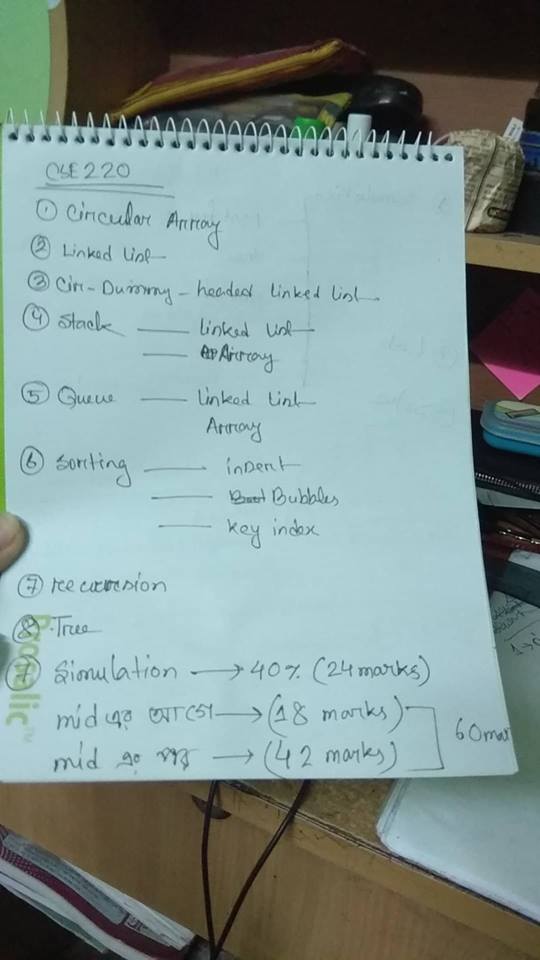 CSE220
① Circular Array
② Linked List
③ Cir-Dummy-headed linked list
④ Stack — Linked List
— Array
⑤ Queue — Linked List
Array
⑥ Sorting — insert
— Bubbles
— Key index
⑦ recursion
⑧ Tree
Simulation → 40% (24 marks)
mid এর আগে → (18 marks)
mid এর পর → (42 marks)
60mar
Prolific